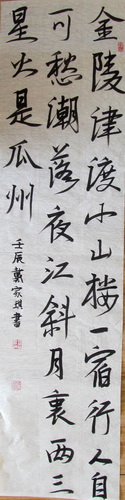 金陵津渡小山楼一宿行人自
可愁潮落夜江斜月裏两三
星火是瓜州
壬辰戴家琪書